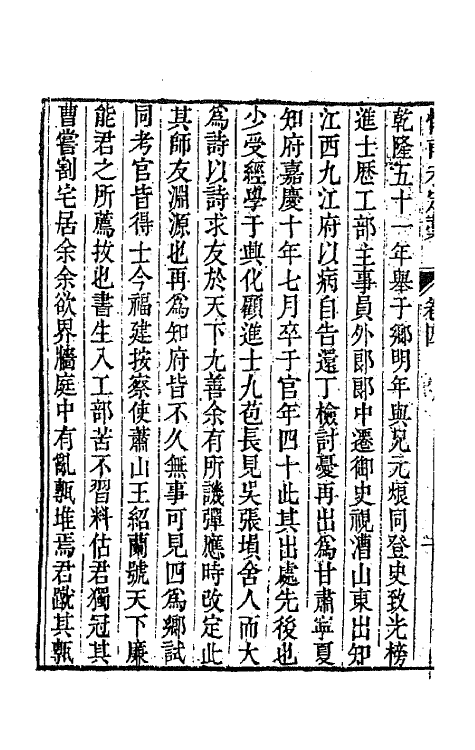 卷四
乾隆五十一年舉于鄉明年與兄元煩同登史致光榜
進士歷工部主事員外郎郎中遷御史視漕山東出知
江西九江府以病自告還丁檢討憂再出爲甘肅寧夏
知府嘉慶十年七月卒于官年四十此其出處先後也
少受經學于興化顧進士九苞長見吳張塤舍人而大
爲詩以詩求友於天下尤善余有所譏彈應時改定此
其師友淵源也再爲知府皆不久無事可見四爲鄉試
同考官皆得士今福建按察使蕭山王紹蘭號天下廉
能君之所薦拔也書生入工部苦不習料估君獨冠其
曹嘗割宅居余余欲界牆庭中有亂甎堆焉君蹴其甎